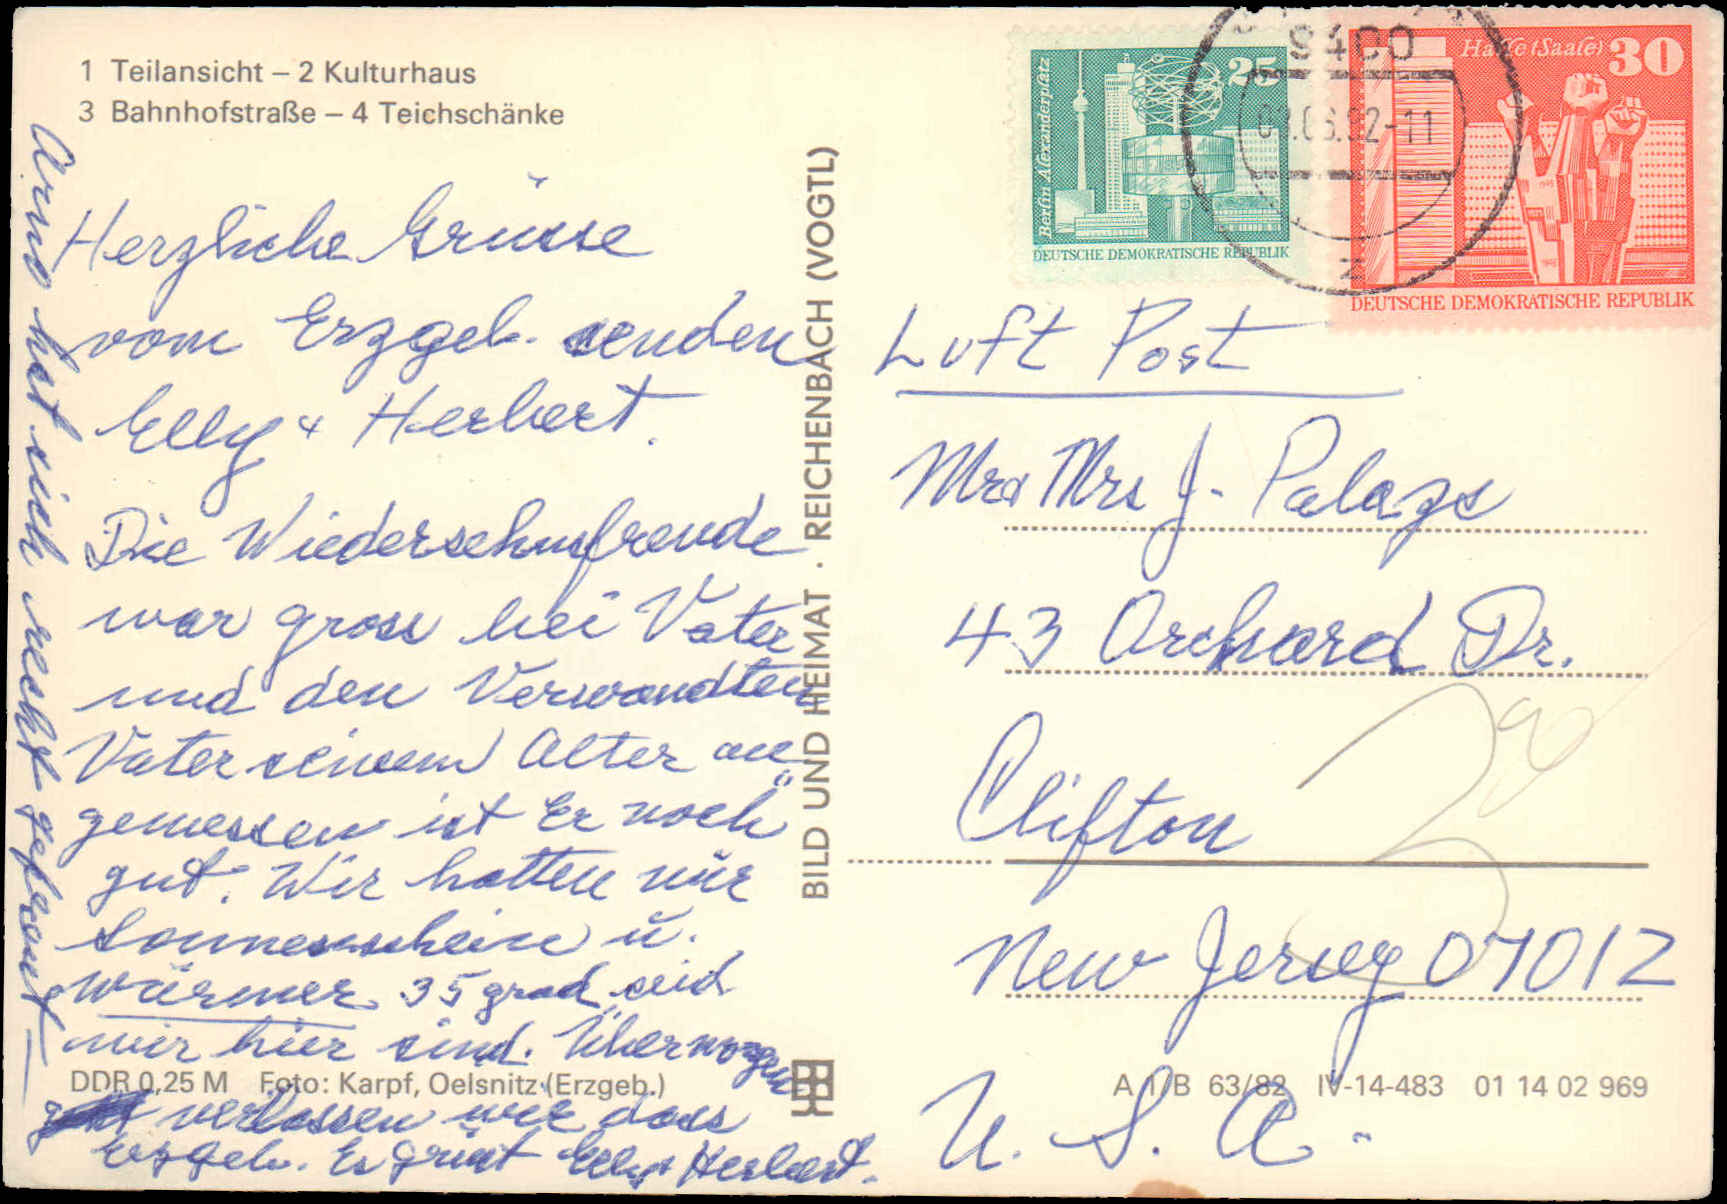 1 Teilansicht – 2 Kulturhaus
3 Bahnhofstraße – 4 Teichschänke
Herzliche Grüsse
vom Erzgeb. senden
Elly + Herbert.
Die Wiedersehnsfreude
war gross bei Vater
und den Verwandten
Vater seinem Alter an
gemessen ist Er noch
gut. Wir hatten nur
Sonnenschein u.
wärmer 35 grad seid
wir hier sind. Übermorgen
verlassen wir dass
Erzgeb. Es grüst Elly + Herbert.
Arno hat sich recht gefreut
DDR 0,25 M Foto: Karpf, Oelsnitz (Erzgeb.)
BILD UND HEIMAT · REICHENBACH (VOGTL)
Berlin Alexanderplatz
25
DEUTSCHE DEMOKRATISCHE REPUBLIK
Halle (Saale) 30
DEUTSCHE DEMOKRATISCHE REPUBLIK
9400
.06.92-11
z
Luft Post
Mr + Mrs J. Palazs
43 Orchard Dr.
Clifton
New Jersey 07012
U. S. A.
A 1/B 63/82 IV-14-483 01 14 02 969